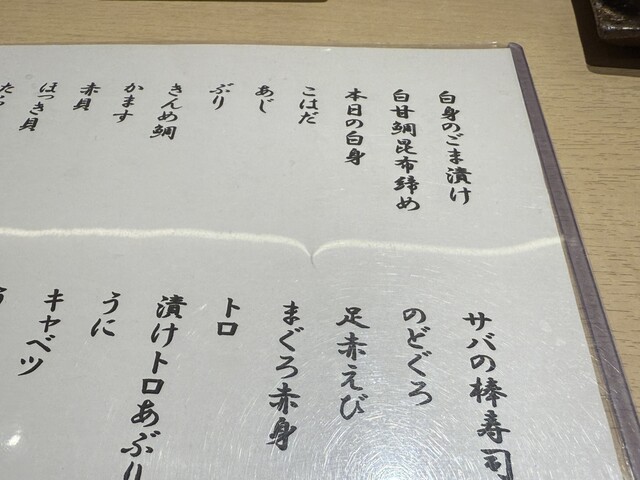 白身のごま漬け
白甘鯛昆布締め
本日の白身
こはだ
あじ
ぶり
きんめ鯛
かます
赤貝
ほっき貝
サバの棒寿司
のどぐろ
足赤えび
まぐろ赤身
トロ
漬けトロあぶり
うに
キャベツ